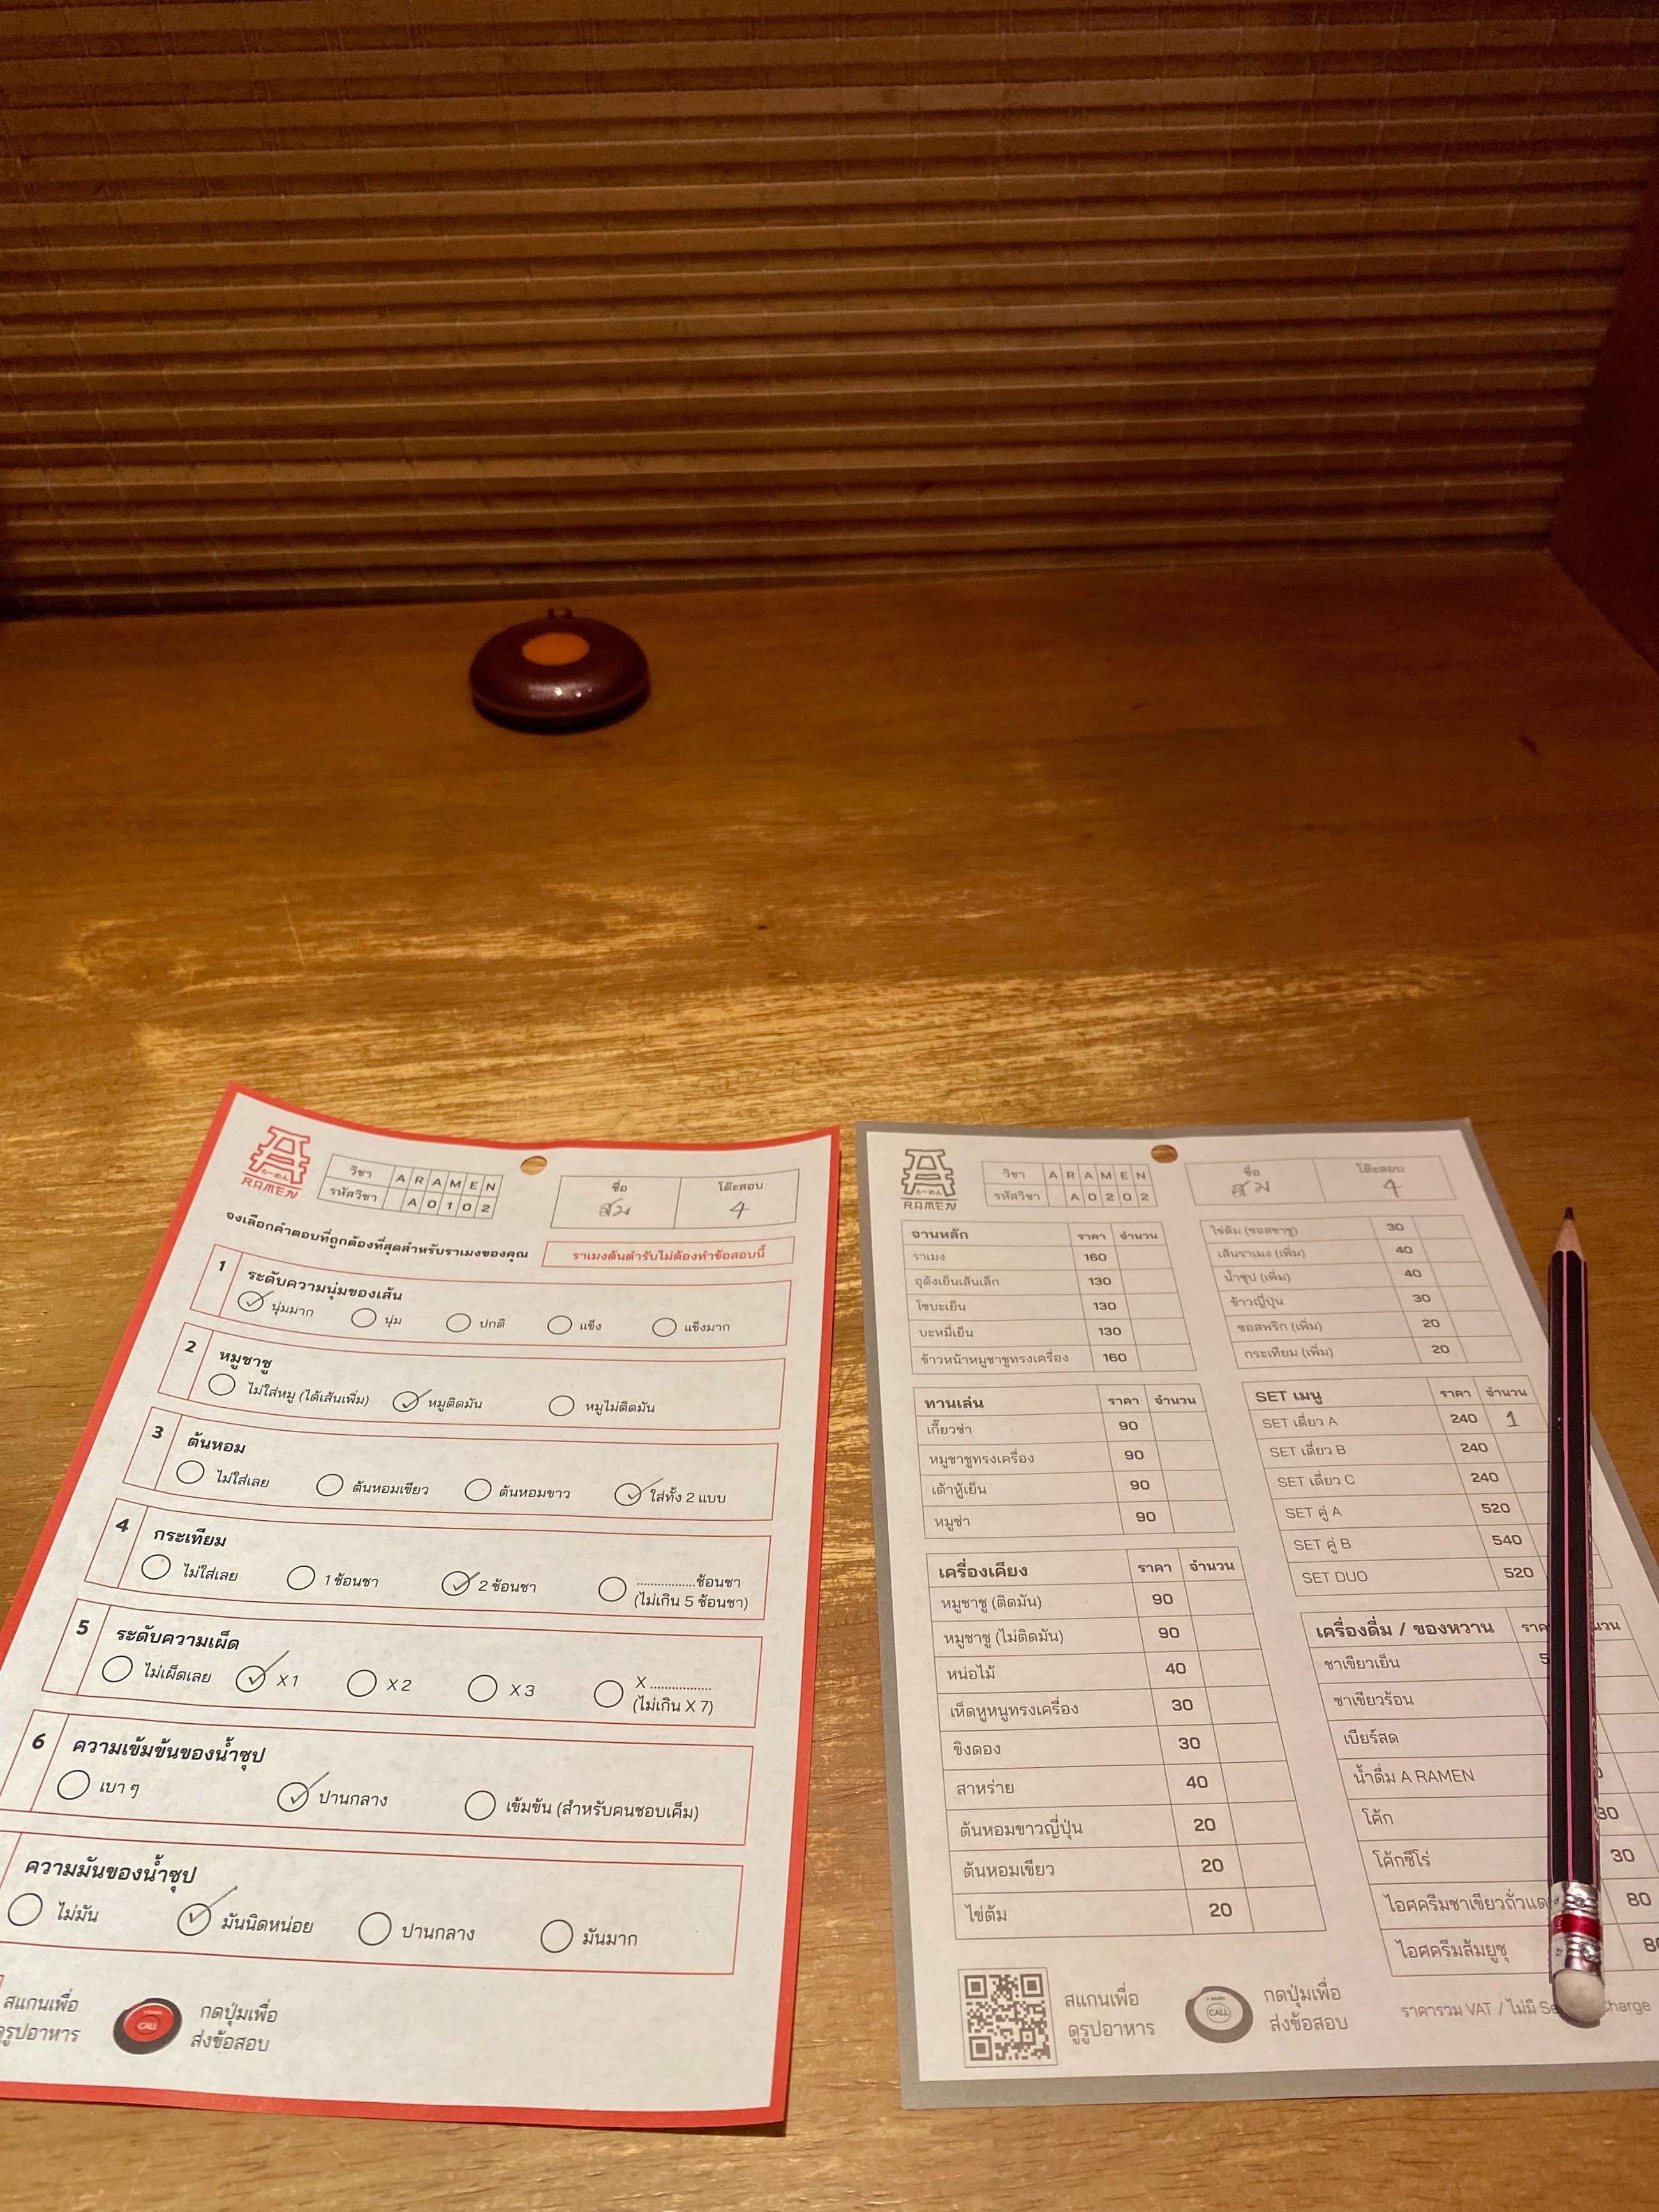 らーめん
RAMEN
วิชา A R A M E N
รหัสวิชา A 0 1 0 2
ชื่อ โต๊ะสอบ
ส้ม 4
จงเลือกคำตอบที่ถูกต้องที่สุดสำหรับราเมงของคุณ
ราเมงต้นตำรับไม่ต้องทำข้อสอบนี้
1 ระดับความนุ่มของเส้น
นุ่มมาก นุ่ม ปกติ แข็ง แข็งมาก
2 หมูชาชู
ไม่ใส่หมู (ได้เส้นเพิ่ม) หมูติดมัน หมูไม่ติดมัน
3 ต้นหอม
ไม่ใส่เลย ต้นหอมเขียว ต้นหอมขาว ใส่ทั้ง 2 แบบ
4 กระเทียม
ไม่ใส่เลย 1 ช้อนชา 2 ช้อนชา ................ช้อนชา
(ไม่เกิน 5 ช้อนชา)
5 ระดับความเผ็ด
ไม่เผ็ดเลย X 1 X 2 X 3 X ................
(ไม่เกิน X 7)
6 ความเข้มข้นของน้ำซุป
เบา ๆ ปานกลาง เข้มข้น (สำหรับคนชอบเค็ม)
ความมันของน้ำซุป
ไม่มัน มันนิดหน่อย ปานกลาง มันมาก
สแกนเพื่อ
ดูรูปอาหาร
CALL
กดปุ่มเพื่อ
ส่งข้อสอบ
らーめん
RAMEN
วิชา A R A M E N
รหัสวิชา A 0 2 0 2
ชื่อ โต๊ะสอบ
ส้ม 4
จานหลัก ราคา จำนวน
ราเมง 160
อุด้งเย็นเส้นเล็ก 130
โซบะเย็น 130
บะหมี่เย็น 130
ข้าวหน้าหมูชาชูทรงเครื่อง 160
ทานเล่น ราคา จำนวน
เกี๊ยวซ่า 90
หมูชาชูทรงเครื่อง 90
เต้าหู้เย็น 90
หมูซ่า 90
เครื่องเคียง ราคา จำนวน
หมูชาชู (ติดมัน) 90
หมูชาชู (ไม่ติดมัน) 90
หน่อไม้ 40
เห็ดหูหนูทรงเครื่อง 30
ขิงดอง 30
สาหร่าย 40
ต้นหอมขาวญี่ปุ่น 20
ต้นหอมเขียว 20
ไข่ต้ม 20
ไข่ต้ม (ซอสชาชู) 30
เส้นราเมง (เพิ่ม) 40
น้ำซุป (เพิ่ม) 40
ข้าวญี่ปุ่น 30
ซอสพริก (เพิ่ม) 20
กระเทียม (เพิ่ม) 20
SET เมนู ราคา จำนวน
SET เดี่ยว A 240 1
SET เดี่ยว B 240
SET เดี่ยว C 240
SET คู่ A 520
SET คู่ B 540
SET DUO 520
เครื่องดื่ม / ของหวาน
ชาเขียวเย็น
ชาเขียวร้อน
เบียร์สด
น้ำดื่ม A RAMEN
โค้ก 30
โค้กซีโร่ 30
ไอศครีมชาเขียวถั่วแดง 80
ไอศครีมส้มยูซุ
สแกนเพื่อ
ดูรูปอาหาร
CALL
กดปุ่มเพื่อ
ส่งข้อสอบ
ราคารวม VAT / ไม่มี